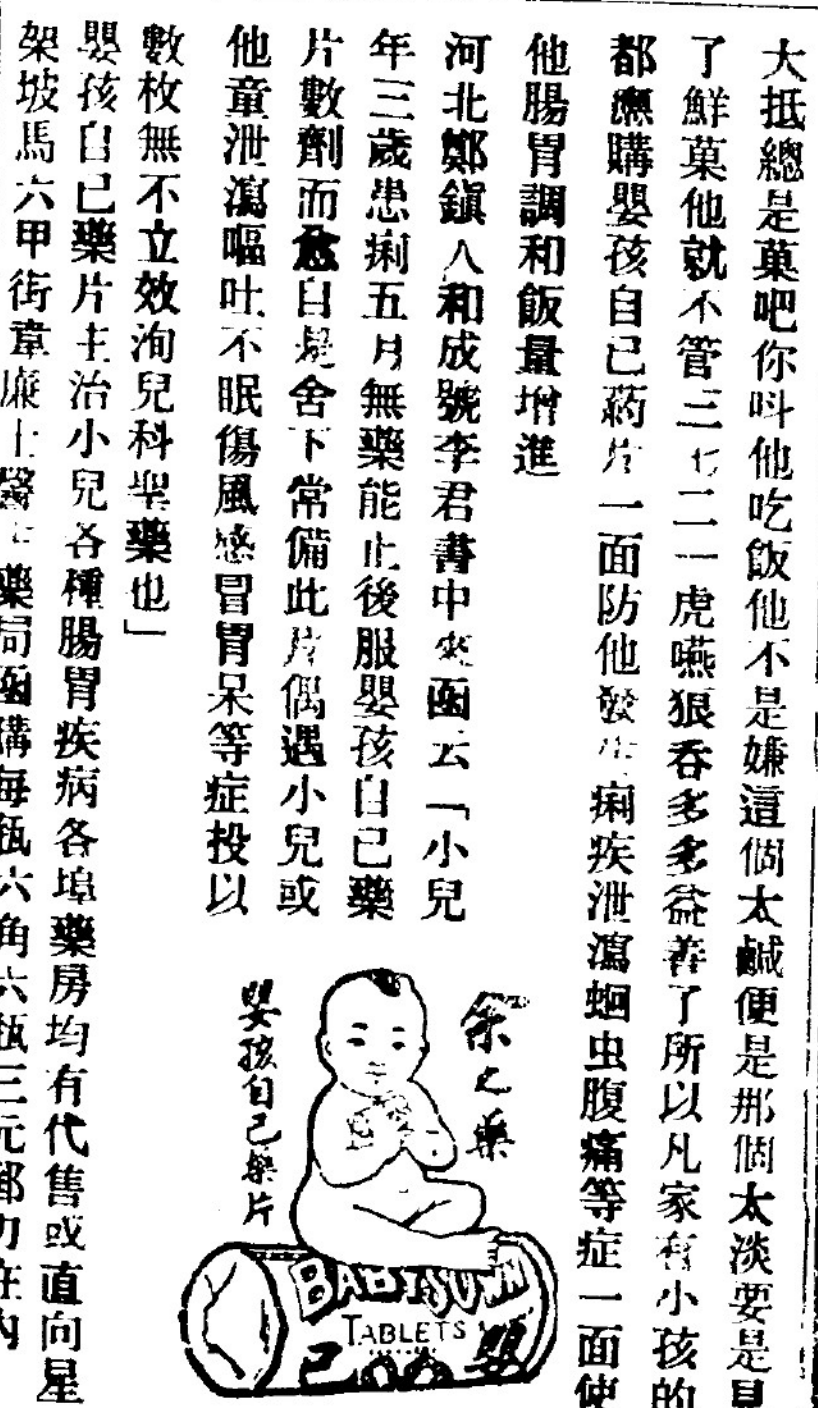 大抵總是菓吧你呌他吃飯他不是嫌這個太鹹便是那個太淡要是見
了鮮菓他就不管三七二一虎嚥狼吞多多益善了所以凡家有小孩的
都應購嬰孩自己葯片一面防他發生痢疾泄瀉蛔虫腹痛等症一面使
他腸胃調和飯量增進
河北鄭鎭人和成號李君書中來函云「小兒
年三歲患痢五月無藥能止後服嬰孩自己藥
片數劑而愈自是舍下常備此片偶遇小兒或
他童泄瀉嘔吐不眠傷風感冒胃呆等症投以
數枚無不立效洵兒科聖藥也」
嬰孩自己藥片主治小兒各種腸胃疾病各埠藥房均有代售或直向星
架坡馬六甲街韋廉士醫生藥局函購每瓶六角六瓶三元郵力在內
余之藥
嬰孩自己藥片
BABY'S OWN
TABLETS
己 嬰